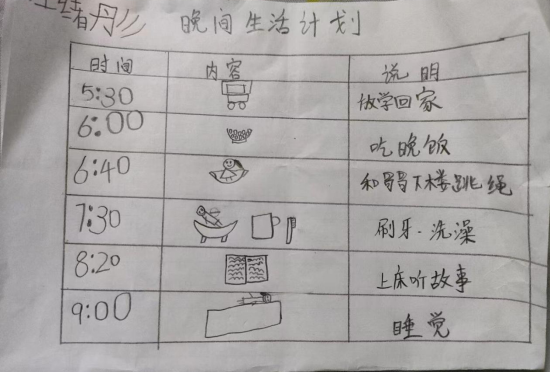 绪彤 晚间生活计划
时间 内容 说明
5:30 放学回家
6:00 吃晚饭
6:40 和哥哥下楼跳绳
7:30 刷牙·洗澡
8:20 上床听故事
9:00 睡觉